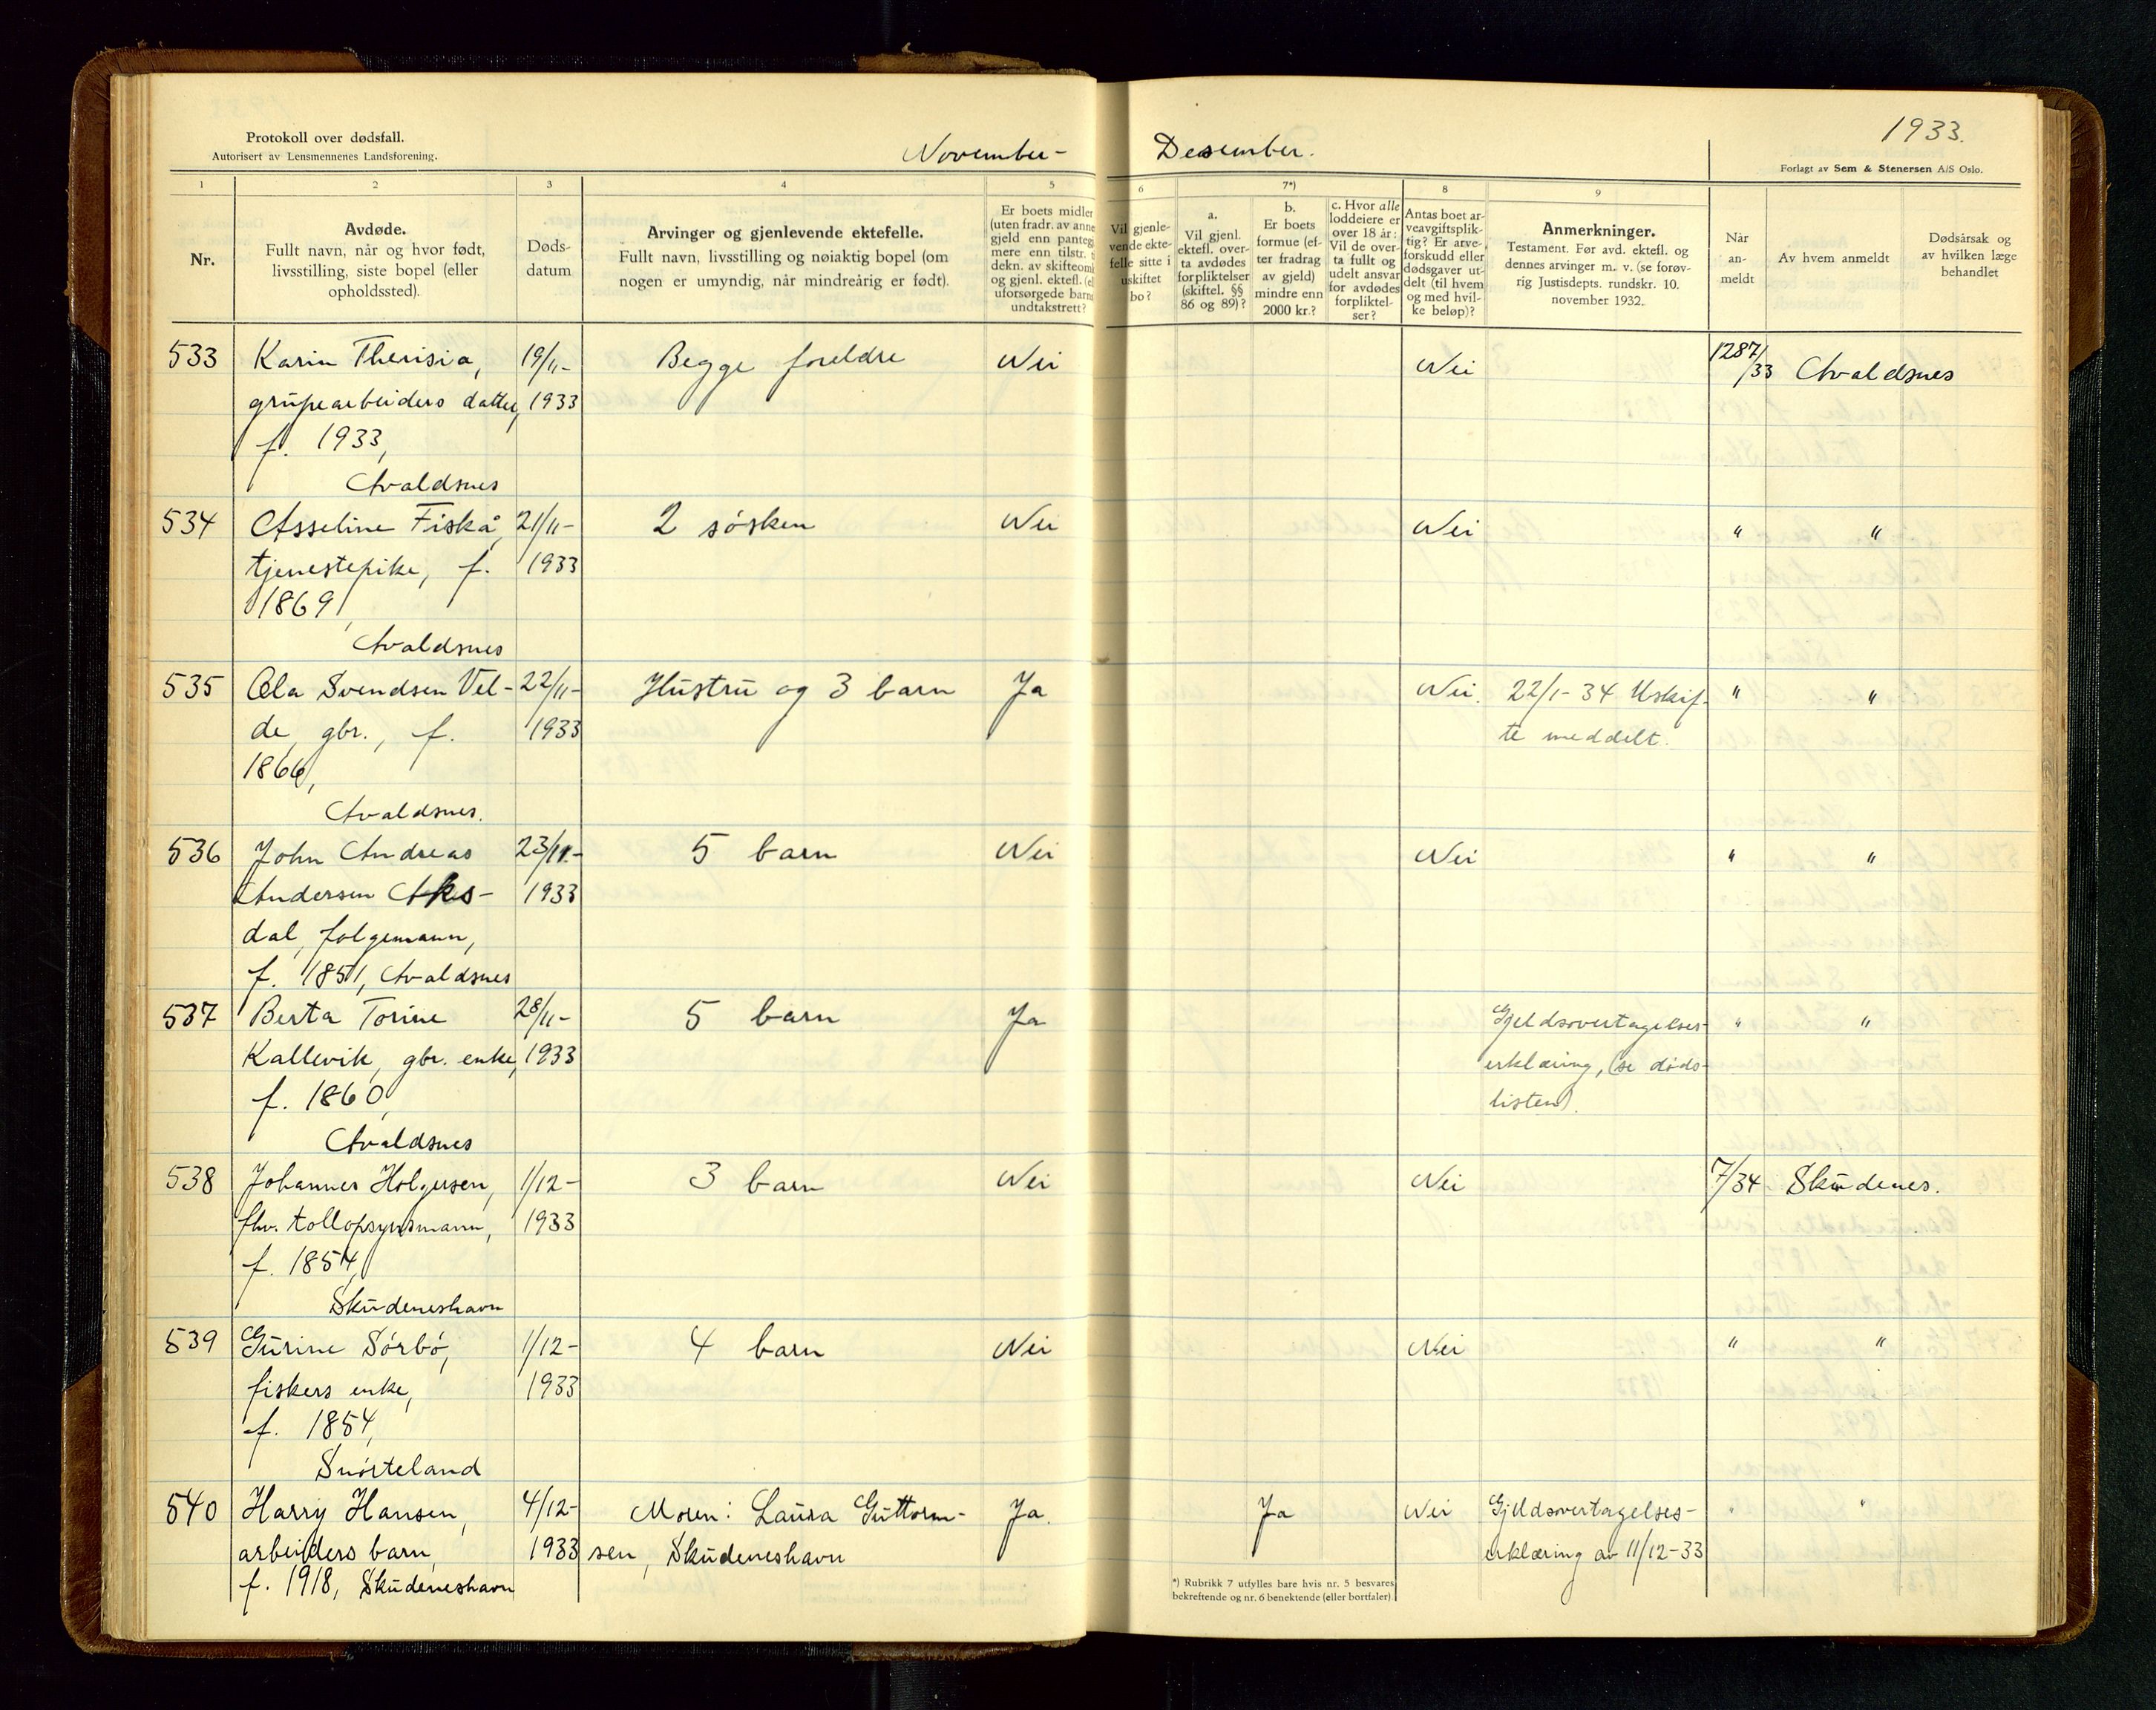 Protokoll over dødsfall.
Autorisert av Lensmennenes Landsforening.
November - Desember.
1933.
Forlagt av Sem & Stenersen A/S Oslo.
1
2
3
4
5
6
7*)
8
9
Nr.
Avdøde.
Fullt navn, når og hvor født,
livsstilling, siste bopel (eller
opholdssted).
Døds-
datum
Arvinger og gjenlevende ektefelle.
Fullt navn, livsstilling og nøiaktig bopel (om
nogen er umyndig, når mindreårig er født).
Er boets midler
(uten fradr. av anne
gjeld enn panteg
mere enn tilstr. t
dekn. av skifteomk
og gjenl. ektefl. (el
uforsørgede barns
undtakstrett?
Vil gjenle-
vende ekte-
felle sitte i
uskiftet
bo?
a.
Vil gjenl.
ektefl. over-
ta avdødes
forpliktelser
(skiftel. §§
86 og 89)?
b.
Er boets
formue (ef-
ter fradrag
av gjeld)
mindre enn
2000 kr.?
c. Hvor alle
loddeiere er
over 18 år:
Vil de over-
ta fullt og
udelt ansvar
for avdødes
forpliktel-
ser?
Antas boet ar-
veavgiftsplik-
tig? Er arve-
forskudd eller
dødsgaver ut-
delt (til hvem
og med hvil-
ke beløp)?
Anmerkninger.
Testament. Før avd. ektefl. og
dennes arvinger m. v. (se forøv-
rig Justisdepts. rundskr. 10.
november 1932.
Når
an-
meldt
Av hvem anmeldt
Dødsårsak og
av hvilken læge
behandlet
533 Karin Therisia, 19/11- Begge foreldre Nei Nei 1287/33 Avaldsnes
grupearbeiders datter, 1933
f. 1933,
Avaldsnes
534 Asseline Fiskå, 21/11- 2 søsken Nei Nei " "
tjenestepike, f. 1933
1869,
Avaldsnes
535 Ola Svendsen Vel- 22/11- Hustru og 3 barn Ja Nei. 22/1-34 Uskif- " "
de, gbr., f. 1933 te meddelt.
1866,
Avaldsnes.
536 John Andreas 23/11- 5 barn Nei Nei " "
Andersen Aks- 1933
dal, følgemann,
f. 1851, Avaldsnes
537 Berta Torine 28/11- 5 barn Ja Gjeldsovertagelses- " "
Kallevik, gbr. enke, 1933 erklæring, (se døds-
f. 1860, listen).
Avaldsnes
538 Johannes Holgersen, 1/12- 3 barn Nei Nei 7/34 Skudenes.
fhv. tollopsynsmann, 1933
f. 1854,
Skudeneshavn
539 Gurine Sørbø, 1/12- 4 barn Nei Nei " "
fiskers enke, 1933
f. 1854,
Snørteland
540 Harry Hansen, 4/12- Moren: Laura Guttorm- Ja. Ja Nei Gjeldsovertagelses- " "
arbeiders barn, 1933 sen, Skudeneshavn erklæring av 11/12-33
f. 1918, Skudeneshavn
*) Rubrikk 7 utfylles bare hvis nr. 5 besvares
bekreftende og nr. 6 benektende (eller bortfaler).